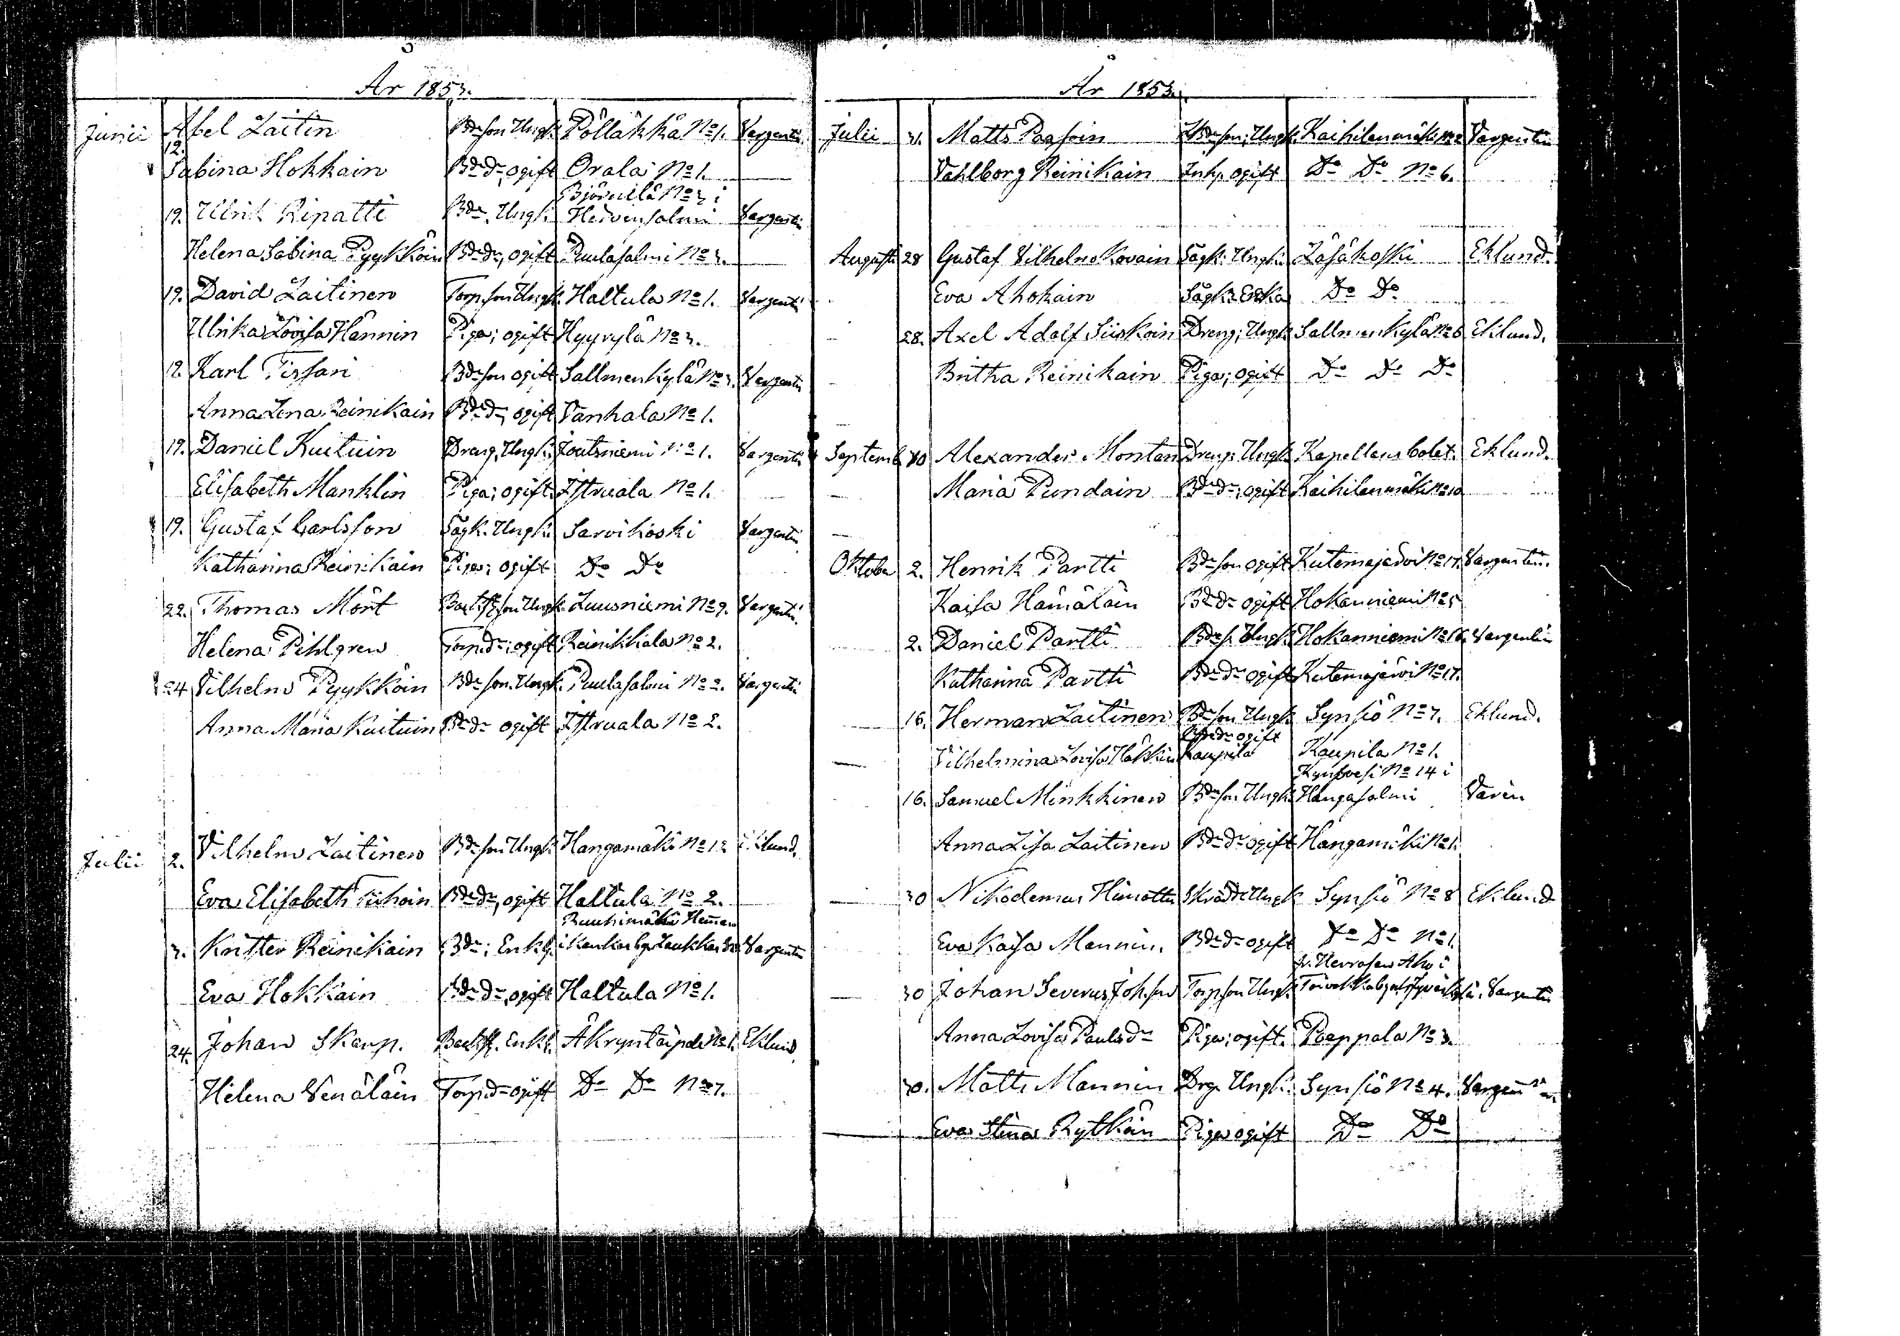 År 1853.
Junii 12. Abel Laitin Bdeson Ungk. Pölläkkä No 1. Vargentin
Sabina Hokkain Bdedr, ogift Orala No 1.
Björnilä No 3 i
19. Ulrik Ripatti Bde, Ungk. Hirvensalmi Vargentin
Helena Sabina Pyykköin Bdedr, ogift Puulasalmi No 3.
19. David Laitinen Torp.son Ungk. Haltula No 1. Vargentin
Ulrika Lovisa Hännin Piga; ogift Hyyrylä No 3.
12. Karl Tissari Bdeson ogift Sallmenkylä No 3. Vargentin
Anna Lena Reinikain Bdedr, ogift Vanhala No 1.
19. Daniel Kuituin Dreng, Ungk. Joutsniemi No 1. Vargentin
Elisabeth Manklin Piga; ogift. Istruala No 1.
19. Gustaf Carlsson Sågk. Ungk. Sarvikoski Vargentin
Katharina Reinikain Piga; ogift Do Do
22. Thomas Mört Backst.son Ungk. Luusniemi No 9. Vargentin
Helena Pihlgren Torp.dr; ogift Reinikkala No 2.
24 Vilhelm Pyykköin Bdeson. Ungk. Puulasalmi No 2. Vargentin
Anna Maria Kuituin Bdedr ogift Istruala No 2.
Julii 2. Vilhelm Laitinen Bdeson Ungk. Hangamäki No 12 Eklund.
Eva Elisabeth Tihoin Bdedr, ogift Haltula No 2.
Kristter Reinikain Bde; Enkl. Vargentin
Eva Hokkain Bdedr, ogift Haltula No 1.
24. Johan Skarp. Backst. Enkl. No 1. Eklund
Helena Venäläin Torp.dr ogift Do Do No 7.
År 1853.
Julii 31. Matts Paasoin Bdeson; Ungk. Kaihilanmäki No 2 Vargentin
Vahlborg Reinikain Inh. ogift Do Do No 6.
Augusti 28 Gustaf Vilhelm Kovain Sågk. Ungk. Läsäkoski Eklund.
Eva Ahokain Sågk. Enka Do Do
28. Axel Adolf Siiskoin Dreng; Ungk. Sallmenkylä No 6 Eklund.
Britha Reinikain Piga; ogift Do Do Do
Septemb. Alexander Montan Dreng. Ungk. Kapellans bolet. Eklund.
Maria Pundain Bdedr; ogift Kaihilanmäki No 10
Oktober 2. Henrik Partti Bdeson ogift Kutemajärvi No 17. Vargentin.
Kaisa Hämäläin Bdedr ogift Hokanniemi No 5
2. Daniel Partti Bdes. Ungk. Hokanniemi No 16. Vargentin
Katharina Partti Bdedr ogift Kutemajärvi No 17.
16. Herman Laitinen Bdeson Ungk Synsiö No 7. Eklund.
Bdedr ogift
Vilhelmina Lovisa Häkkin Kaupila Kaupila No 1.
Kynsvesi No 14 i
16. Samuel Minkkinen Bdeson Ungk. Hangasalmi Varén
Anna Lisa Laitinen Bdedr ogift Hangamäki No 1.
30 Nikodemus Himottu Skrädd. Ungk Synsiö No 8 Eklund
Eva Kaisa Mannin. Bdedr ogift Do Do No 1.
30 Johan Severus Johsson Torp.son Ungk. Vargentin
Anna Lovisa Paulsdr Piga; ogift. Poappala No 3.
30. Matts Mannin Drg. Ungk. Synsiö No 4. Vargentin
Eva Stina Rytköin Piga ogift Do Do